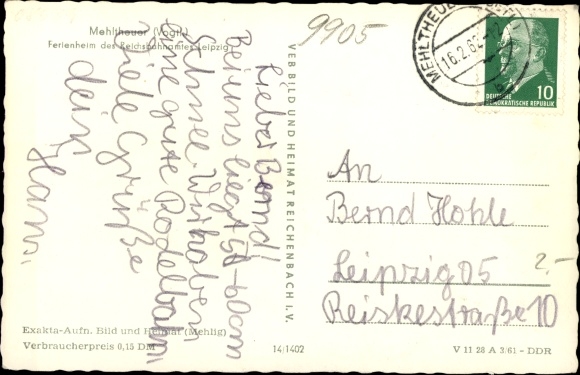 Mehltheuer (Vogtl)
Ferienheim des Reichsbahnamtes Leipzig
Lieber Bernd!
Bei uns liegt 50-60cm
Schnee. Wir haben
eine gute Rodelbahn,
Viele Grüße
dein
Hans.
9905
VEB BILD UND HEIMAT REICHENBACH I. V.
MEHLTHEUER
16.2.62-12
DEUTSCHE
DEMOKRATISCHE REPUBLIK
10
An
Bernd Hohle
Leipzig 05
Reiskestraße 10
2.-
Exakta-Aufn. Bild und Heimat (Mehlig)
Verbraucherpreis 0,15 DM
14/1402
V 11 28 A 3/61 - DDR